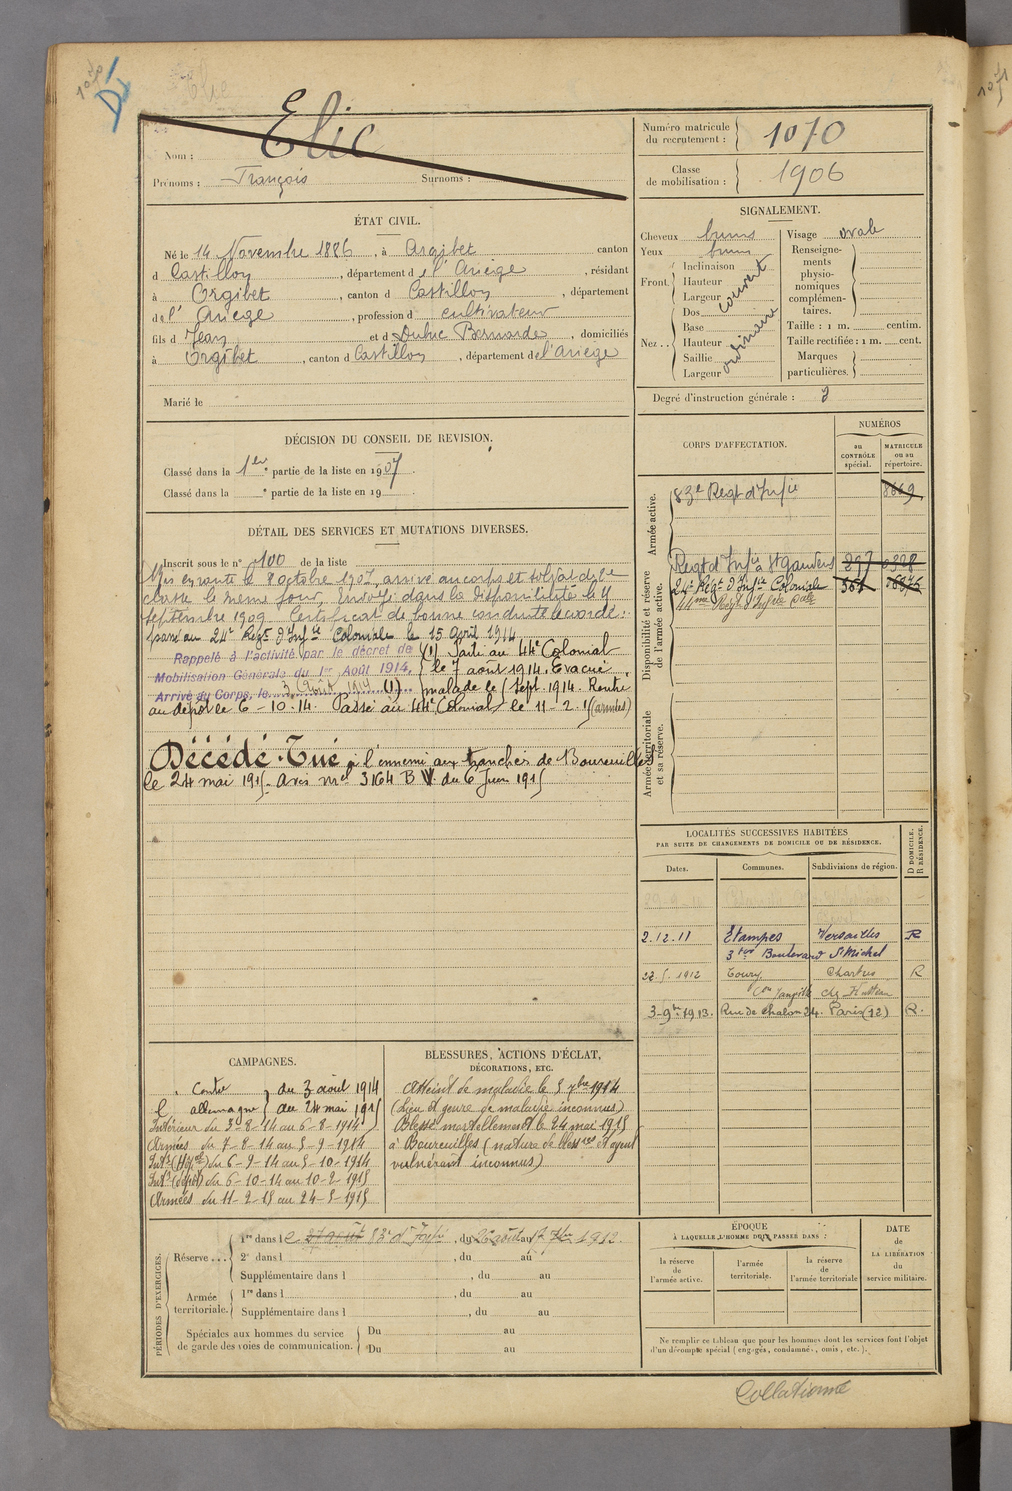 1070
Elie
Nom : Elie
Prénoms : François Surnoms :
Numéro matricule du recrutement : 1070
Classe de mobilisation : 1906
ÉTAT CIVIL.
Né le 14 Novembre 1886, à Argibet canton
d Castillon, département d e l'Ariège, résidant
à Orgibet, canton d Castillon, département
de l' Ariege, profession d cultivateur
fils d Jean et d Dubuc Bernarde, domiciliés
à Orgibet, canton d Castillon, département de l'ariège
Marié le
SIGNALEMENT.
Cheveux bruns
Yeux bruns
Front. Inclinaison
Hauteur
Largeur
couvert
Nez .. Dos
Base
Hauteur
Saillie
Largeur
ordinaire
Visage ovale
Renseigne-
ments
physio-
nomiques
complémen-
taires.
Taille : 1 m. centim.
Taille rectifiée : 1 m. cent.
Marques
particulières.
Degré d'instruction générale : 3
DÉCISION DU CONSEIL DE REVISION.
Classé dans la 1ère partie de la liste en 1907.
Classé dans la e partie de la liste en 19 .
DÉTAIL DES SERVICES ET MUTATIONS DIVERSES.
Inscrit sous le n° 100 de la liste
Mis en route le 8 octobre 1907, arrivé au corps et soldat de 2e
classe le même jour, Envoyé dans la disponibilité le
septembre 1909 Certificat de bonne conduite accordé :
passé au 24e Regt d'Infie Coloniale le 15 avril 1914
Rappelé à l'activité par le décret de
Mobilisation Générale du 1er Août 1914,
Arrivé au Corps, le 3 Août 1914 (1)
(1) Parti au 44e Colonial
le 7 août 1914. Evacué
malade le 5 sept. 1914. Rentré
au dépôt le 6-10-14. Passé au 44e Colonial le 11-2-15 (armées)
Décédé. Tué à l'ennemi aux tranchées de Boureuilles
le 24 mai 1915. Avis mel 3164 B V. du 6 Juin 1915
CORPS D'AFFECTATION.
NUMÉROS
au CONTRÔLE spécial.
MATRICULE ou au répertoire.
Armée active.
83e Regt d'Infie 8669
Disponibilité et réserve de l'armée active.
Regt d'Infie à St Gaudens 297 0328
24e Regt d'Infie Coloniale
44me Regt d'Infie Cale
Armée territoriale et sa réserve.
LOCALITÉS SUCCESSIVES HABITÉES
PAR SUITE DE CHANGEMENTS DE DOMICILE OU DE RÉSIDENCE.
Dates. Communes. Subdivisions de région. D DOMICILE. R RÉSIDENCE.
2.12.11 Etampes Versailles R
3 ter Boulevard St Michel
22.5.1912 Toury Chartres R
Con Janville
3-9bre 1913. Rue de Chalon 24. Paris (12) R.
CAMPAGNES.
Contre du 3 août 1914
l' allemagne au 24 mai 1915
Intérieur du 3-8-14 au 6-8-1914
Armées du 7-8-14 au 5-9-1914
Intr (Hopal) du 6-9-14 au 5-10-1914
Intr (dépôt) du 6-10-14 au 10-2-1915
Armées du 11-2-15 au 24-5-1915
BLESSURES, ACTIONS D'ÉCLAT,
DÉCORATIONS, ETC.
Atteint de maladie le 5 7bre 1914
(Lieu et genre de maladie inconnus)
Blessé mortellement le 24 mai 1915
à Boureuilles (nature de blesses et agent
vulnérant inconnus)
PÉRIODES D'EXERCICES.
Réserve ... 1re dans l e 83e d'Infie, du 26 août au 17 7bre 1912.
2e dans l , du au
Supplémentaire dans l , du au
Armée territoriale. 1re dans l , du au
Supplémentaire dans l , du au
Spéciales aux hommes du service
de garde des voies de communication.
Du au
Du au
ÉPOQUE
À LAQUELLE L'HOMME DOIT PASSER DANS :
la réserve de l'armée active.
l'armée territoriale.
la réserve de l'armée territoriale
DATE de LA LIBÉRATION du service militaire.
Ne remplir ce tableau que pour les hommes dont les services font l'objet
d'un décompte spécial (engagés, condamnés, omis, etc.).
Collationné
1071